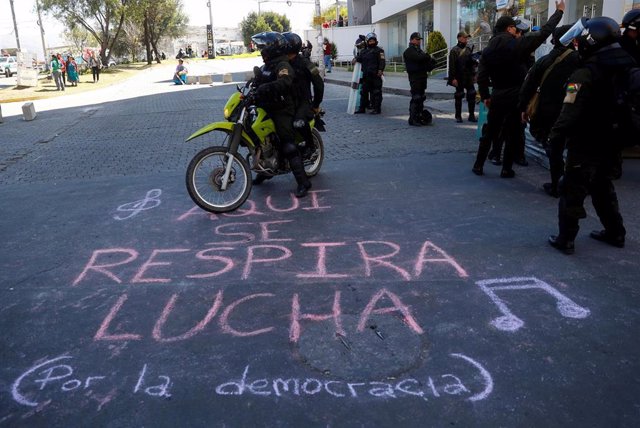 AQUI
SE
RESPIRA
LUCHA
(Por la democracia)